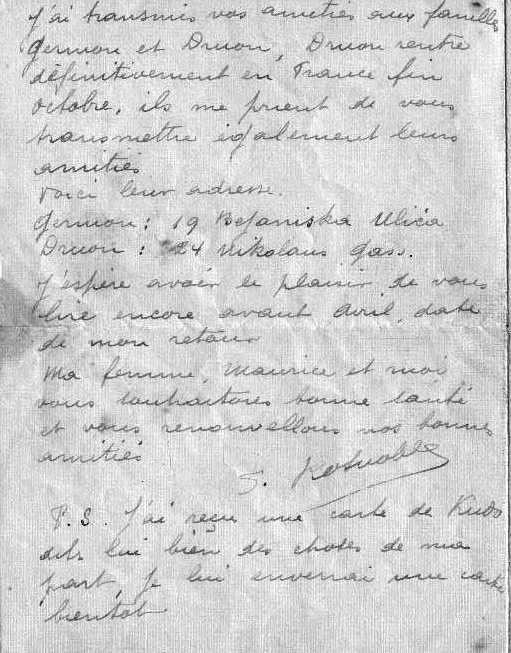 J'ai transmis vos amitiés aux familles
Germon et Druon, Druon rentre
définitivement en France fin
octobre, ils me prient de vous
transmettre également leurs
amitiés
Voici leur adresse.
Germon : 19 Bejaniska Ulica
Druon : 24 Nikolaus Gass.
J'espère avoir le plaisir de vous
lire encore avant Avril, date
de mon retour
Ma femme, Maurice et moi
vous souhaitons bonne santé
et vous renouvellons nos bonnes
amitiés
S.
P.S. J'ai reçu une carte de
dits lui bien des choses de ma
part, je lui enverrai une carte
bientot